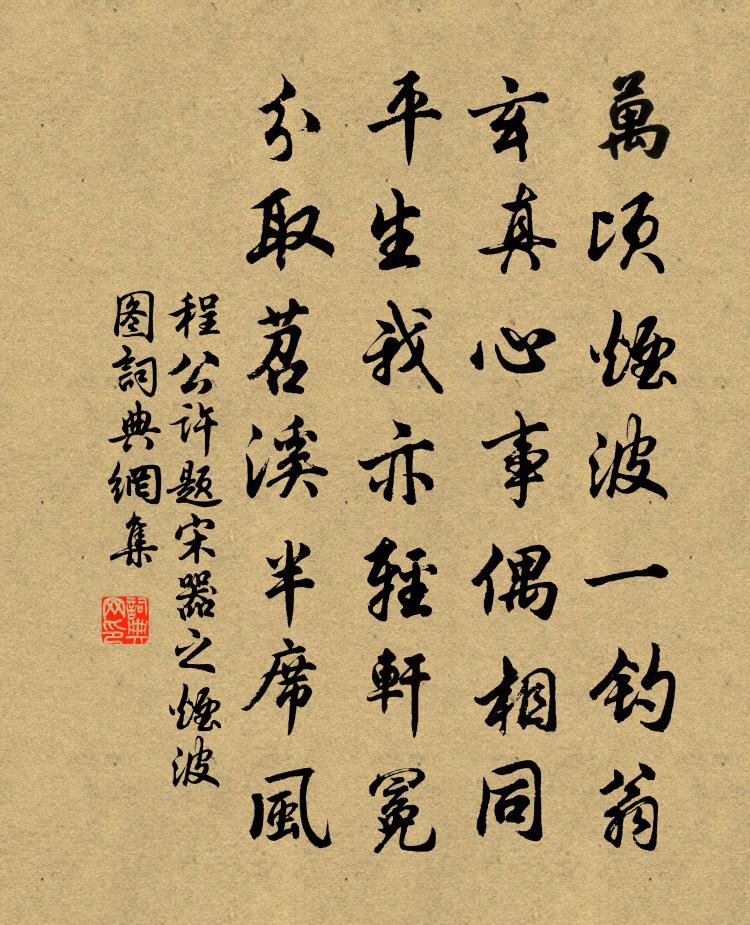 萬頃煙波一釣翁
玄真心事偶相同
平生我亦輕軒冕
分取苕溪半席風
程公許題宋器之煙波
图詞典網集
詞典網印